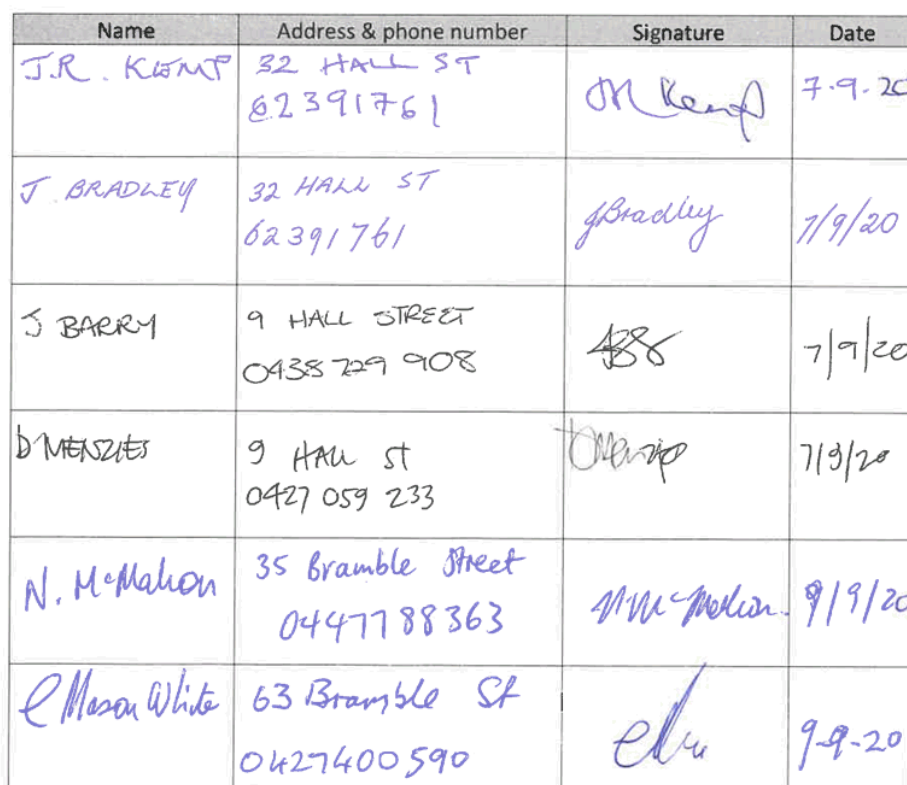 Name Address & phone number Signature Date
J.R. KEMP 32 HALL ST
62391761 JR Kemp 7.9.20
J. BRADLEY 32 HALL ST
62391761 JBradley 7/9/20
J BARRY 9 HALL STREET
0438 729 908 7/9/20
D MENZIES 9 HALL St
0427 059 233 DMenzies 7/9/20
N. McMahon 35 Bramble Street
0447788363 N McMahon. 9/9/20
C Mason White 63 Bramble St
0427400590 9-9-20